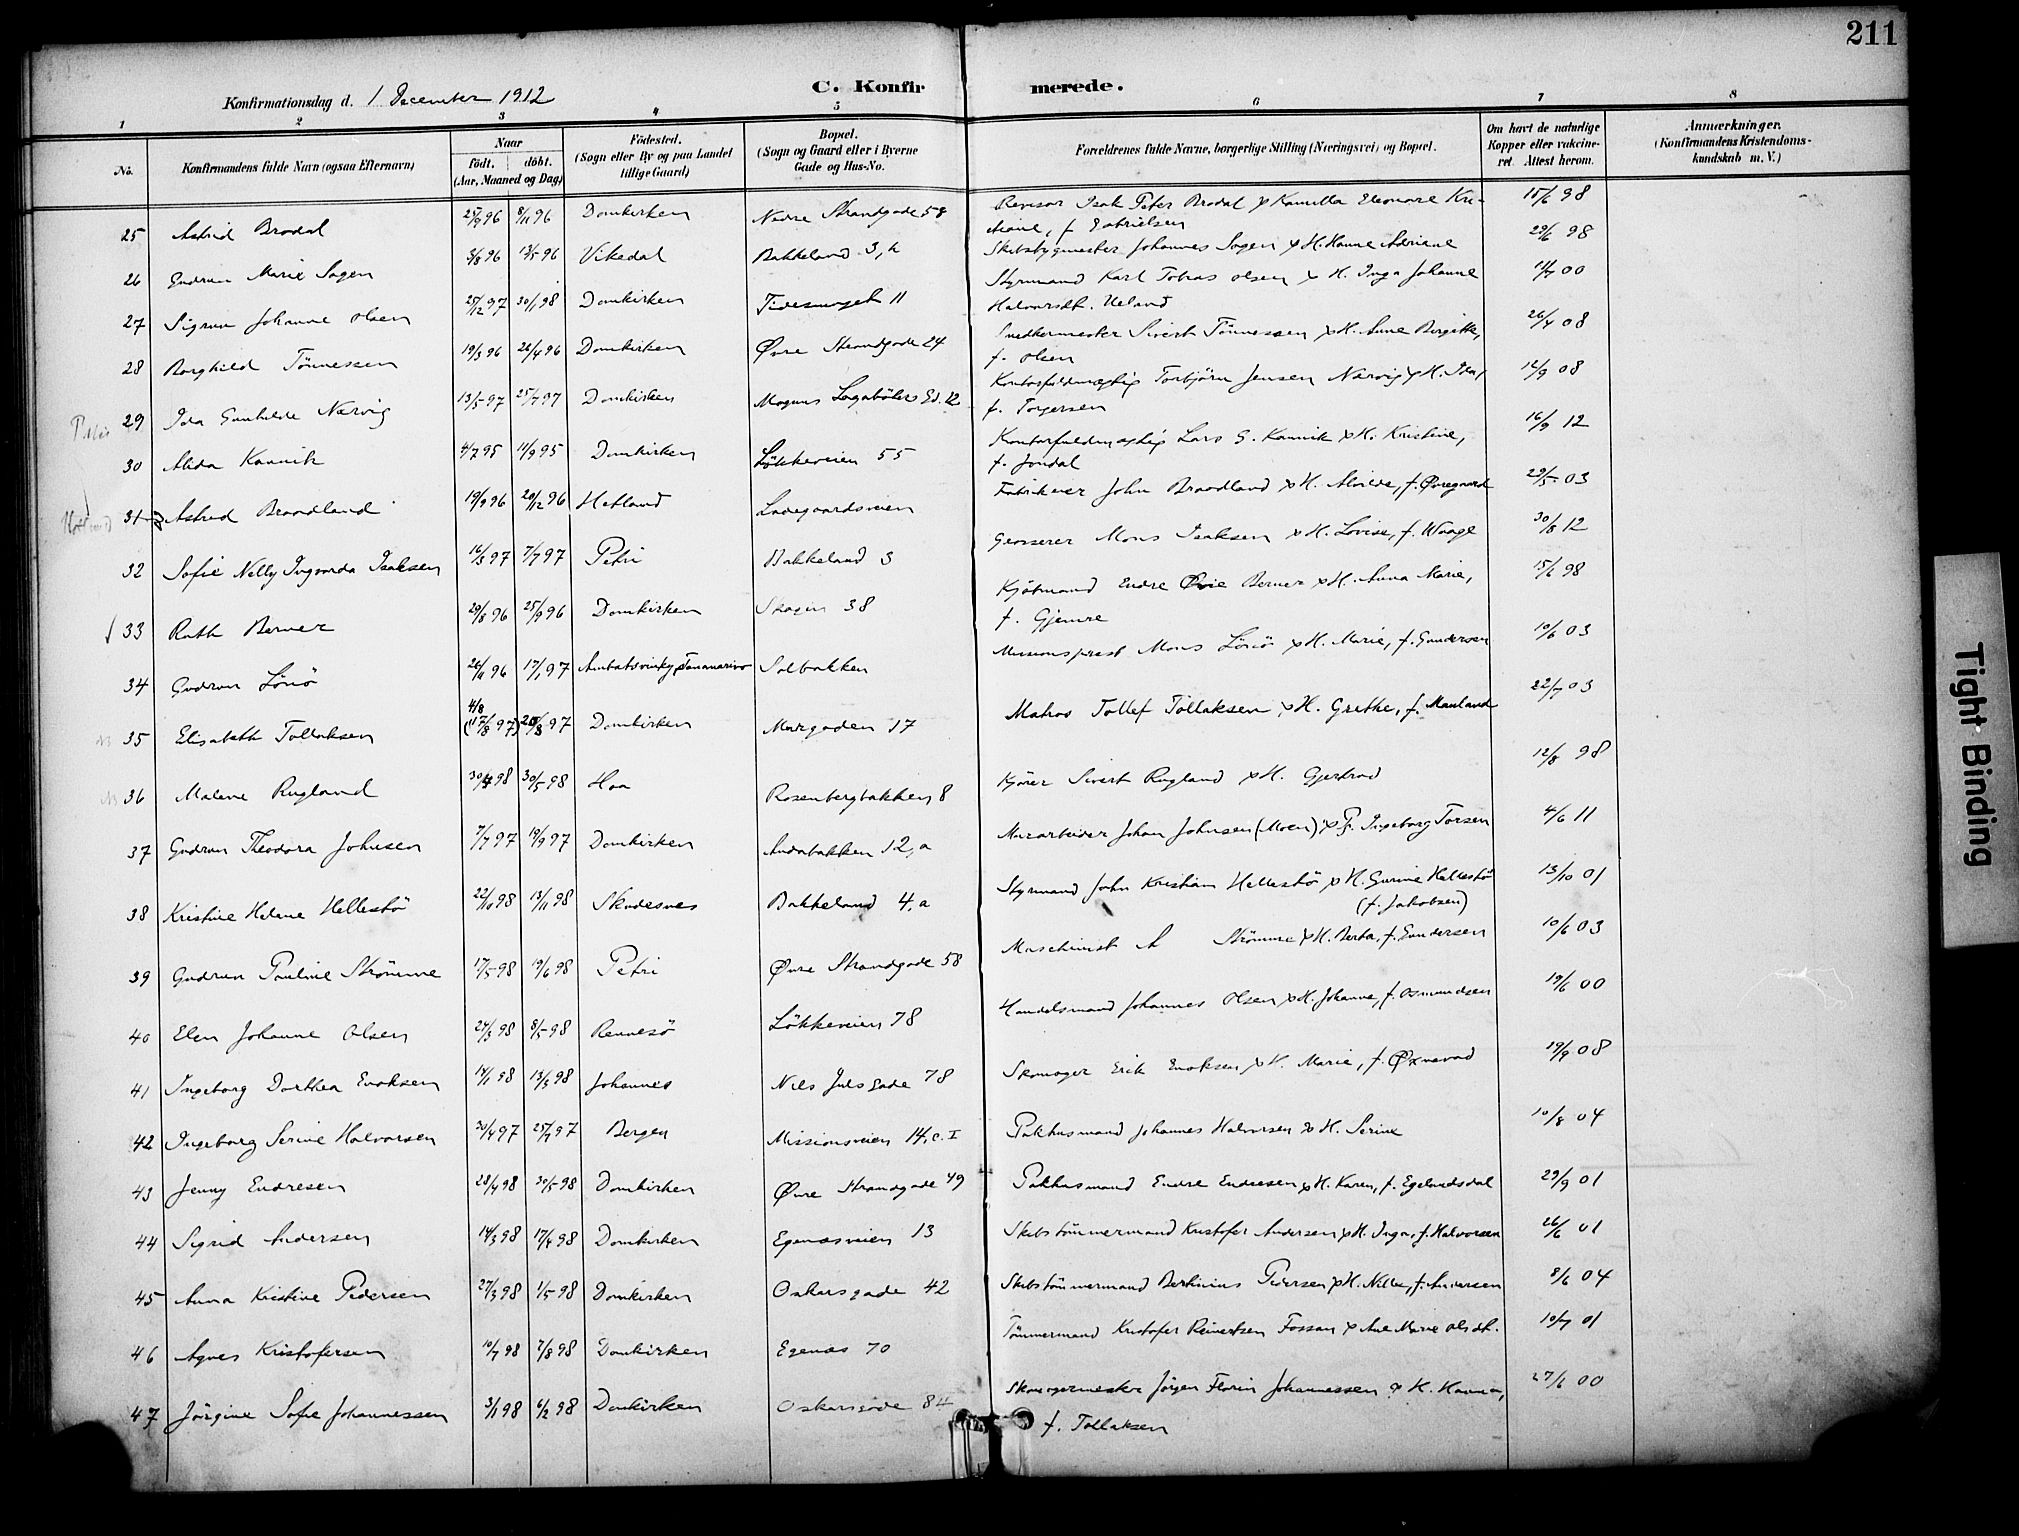 211
Konfirmationsdag d. 1 December 1912
C. Konfirmerede.
1 2 3 4 5 6 7 8
No. | Konfirmandens fulde Navn (ogsaa Efternavn) | Naar født. døbt. (Aar, Maaned og Dag) | Fødested. (Sogn eller By og paa Landet tillige Gaard) | Bopæl. (Sogn og Gaard eller i Byerne Gade og Hus-No. | Forældrenes fulde Navne, borgerlige Stilling (Næringsvei) og Bopæl. | Om havt de naturlige Kopper eller vaccineret. Attest herom. | Anmærkninger. (Konfirmandens Kristendomskundskab m. V.)
25 Astrid Brodal 8/11 96 Domkirken Nedre Strandgade 58 Revisor Isak Peter Brodal & Kamilla Eleonore Kristiane, f. Gabrielsen 15/6 98
26 Gudrun Marie Sagen 3/3 96 Vikedal Bakkeland 3, a Skibsbygmester Johannes Sagen & H. Hanne Adriane 29/6 98
27 Sigrun Johanne Olsen 29/12 97 30/1 98 Domkirken Tidemanget 11 Styrmand Karl Tobias Olsen & H. Inga Johanne Halvorsdt. Ueland 00
28 Borghild Tönnessen 19/3 96 26/4 96 Domkirken Øvre Strandgade 24 Snedkermester Sivert Tönnessen & H. Anne Birgitte, f. Olsen 26/4 08
29 Ida Gunhilde Nærvig 13/5 97 25/7 97 Domkirken Magnus Lagabøters Gd. 12 Kontorfuldmægtig Torbjörn Jensen Nærvig & H. Ida, f. Torgersen 12/9 08
30 Alida Kannik 4/7 95 11/9 95 Domkirken Løkkeveien 55 Kontorfuldmægtig Lars G. Kannik & H. Kristine, f. Jondal 16/9 12
31 Astrid Braadland 19/9 96 20/12 96 Hetland Ladegaardsveien Fabrikeier John Braadland & H. Alvilde, f. Øvregaard 29/5 03
32 Sofie Nelly Ingvarda Isaksen 16/3 97 7/7 97 Petri Bakkeland 3 Grosserer Mons Isaksen & H. Lovise, f. Waage 30/8 12
33 Ruth Berner 29/8 96 25/9 96 Domkirken Skagen 38 Kjøbmand Endre Øvie Berner & H. Anna Marie, f. Gjemre 15/6 98
34 Gudrun Lönö 26/11 96 17/1 97 Ambatovinky, Tananarivo Solbakken Missionsprest Mons Lönö & H. Marie, f. Gundersen 10/6 03
35 Elisabeth Tollaksen 4/8 (17/8 97) 97 Domkirken Murgaden 17 Matros Tollef Tollaksen & H. Grethe, f. Mauland 22/7 03
36 Malene Rugland 98 30/5 98 Haa Rosenbergbakken 8 Kjører Sivert Rugland & H. Gjertrud 12/8 98
37 Gudrun Theodora Johnsen 7/7 97 19/9 97 Domkirken Andabakken 12, a Murarbeider Johan Johnsen (Moen) & Ingeborg Torsen 4/6 11
38 Kristine Helene Hellestö 22/10 98 13/11 98 Skudesnes Bakkeland 4, a Styrmand John Kristian Hellestö & H. Gurine Hellestö (f. Jakobsen) 13/10 01
39 Gudrun Pauline Strömme 17/5 98 19/6 98 Petri Øvre Strandgade 58 Maschinist A Strömme & H. Berta, f. Gundersen 10/6 03
40 Elen Johanne Olsen 24/3 98 8/5 98 Rennesö Løkkeveien 78 Handelsmand Johannes Olsen & H. Johanne, f. Osmundsen 19/6 00
41 Ingeborg Dorthea Enoksen 14/1 98 13/3 98 Johannes Niels Juels gade 78 Skomager Erik Enoksen & H. Marie, f. Øxnevad 19/9 08
42 Ingeborg Serine Halvorsen 30/4 97 25/7 97 Bergen Missionsveien 14, c. I Pakhusmand Johannes Halvorsen & H. Serine 10/8 04
43 Jenny Endresen 28/4 98 30/5 98 Domkirken Øvre Strandgade 49 Pakhusmand Endre Endresen & H. Karen, f. Egelandsdal 29/9 01
44 Sigrid Andersen 14/3 98 17/4 98 Domkirken Egenæsveien 13 Skibstömmermand Kristofer Andersen & H. Inga, f. Halvorsen 26/6 01
45 Anna Kristine Pedersen 27/3 98 1/5 98 Domkirken Oskarsgade 42 Skibstömmermand Bertinius Pedersen & H. Nille, f. Andersen 8/6 04
46 Agnes Kristofersen 10/7 98 7/8 98 Domkirken Egenæs 70 Tömmermand Kristofer Reinertsen Fossan & Ane Marie Olsdt. 10/7 01
47 Jörgine Sofie Johannessen 3/1 98 6/2 98 Domkirken Oskarsgade 84 Skomagermester Jörgen Florin Johannessen & H. Hanna, f. Tollaksen 27/6 00
Tight Binding